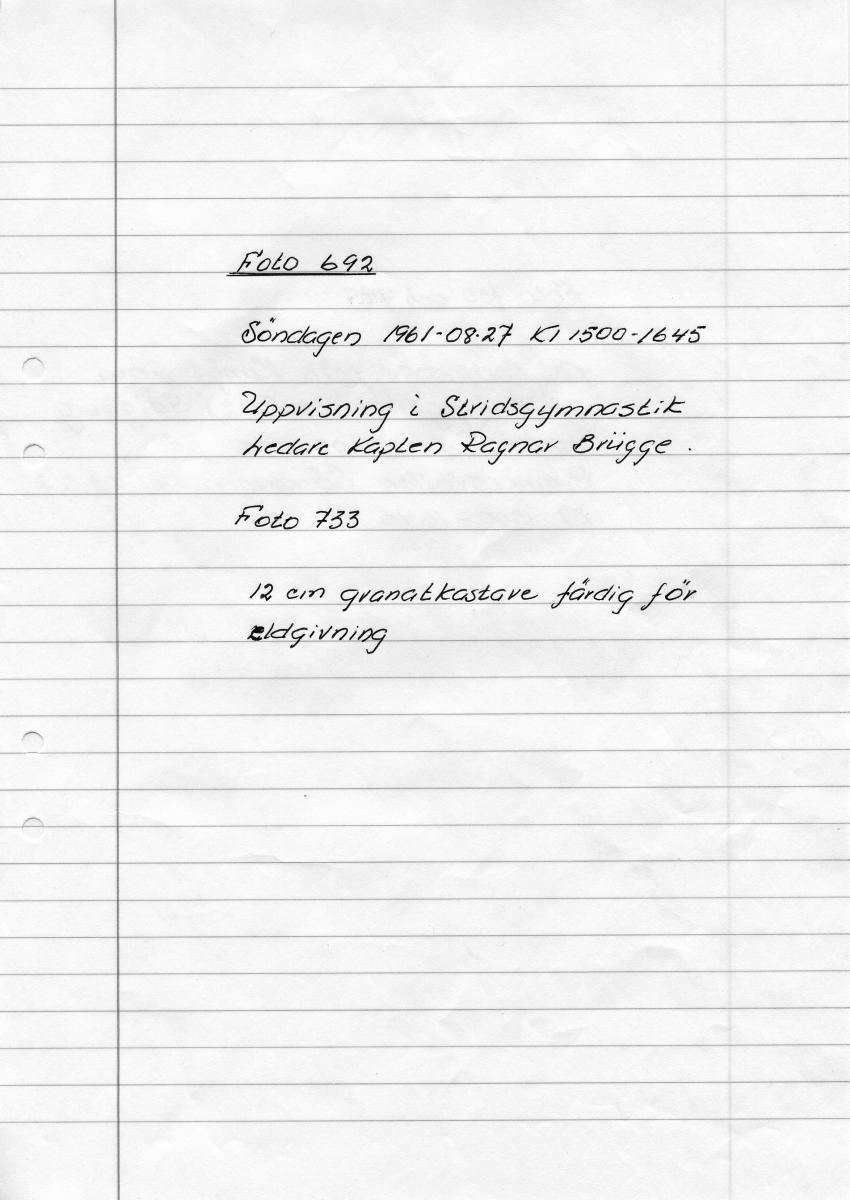 Foto 692
Söndagen 1961-08-27 Kl 1500-1645
Uppvisning i Stridsgymnastik
Ledare Kapten Ragnar Brügge.
Foto 733
12 cm granatkastare färdig för
eldgivning